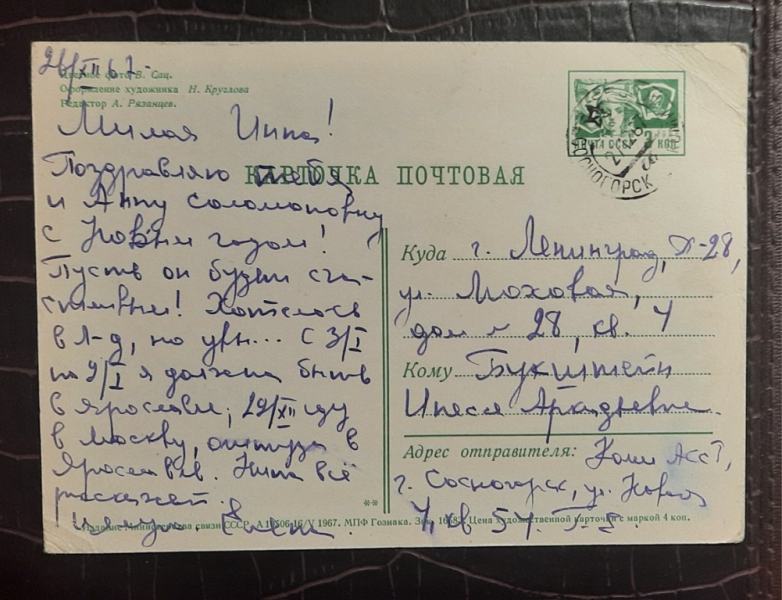 26/XII 67-
Цветное фото В. Сац.
Оформление художника Н. Круглова
Редактор А. Рязанцев.
Милая Инна!
Поздравляю тебя
и Анну Соломоновну
с Новым годом!
Пусть он будет сча-
стливым! Хотелось
в Л-д, но увы... С 3/I
по 9/I я должна быть
в Ярославле, 29/XII еду
в Москву, оттуда в
Ярославль. Нина всё
расскажет.
Целую.
КАРТОЧКА ПОЧТОВАЯ
ПОЧТА СССР 3 КОП
СОСНОГОРСК
Куда г. Ленинград, Д-28,
ул. Моховая,
дом № 28, кв. 4
Кому Букштейн
Инессе Аркадьевне.
Адрес отправителя: Коми АССР,
г. Сосногорск, ул.
кв 54.
**
Издание Министерства связи СССР. 1967. МПФ Гознака. Цена художественной карточки с маркой 4 коп.